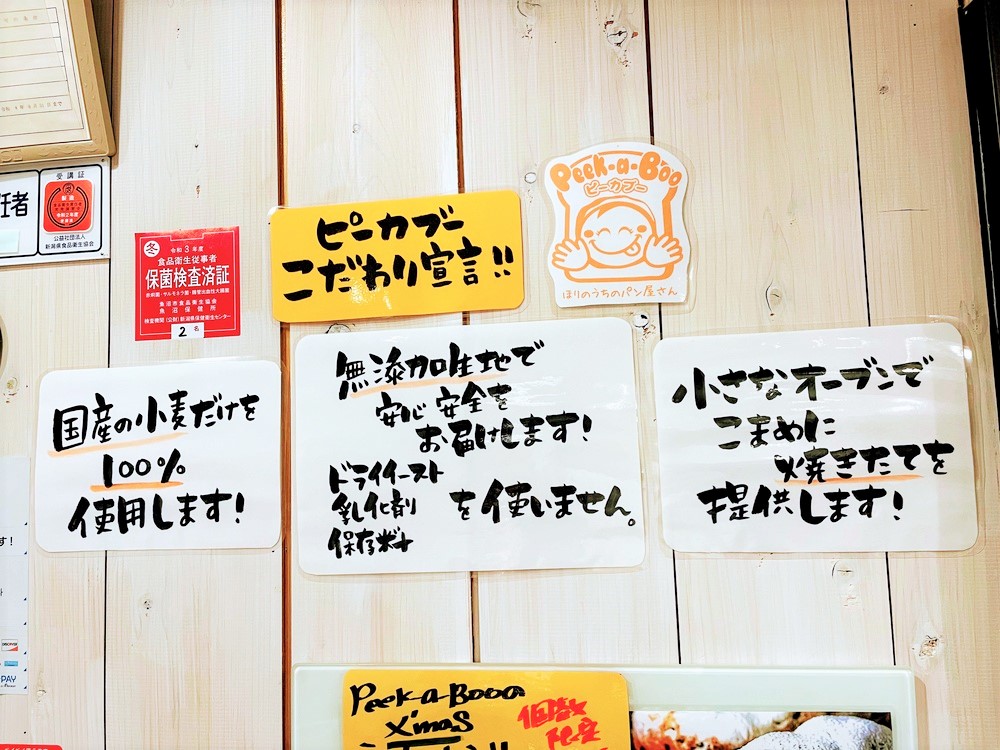 任者
受講証
公益社団法人
新潟県食品衛生協会
冬
令和3年度
食品衛生従事者
保菌検査済証
赤痢菌・サルモネラ菌・腸管出血性大腸菌
魚沼市食品衛生協会
魚沼保健所
検査機関（公財）新潟県保健衛生センター
2名
ピーカブー
こだわり宣言!!
Peek-a-Boo
ピーカブー
ほりのうちのパン屋さん
国産の小麦だけを
100%
使用します!
無添加生地で
安心安全を
お届けします!
ドライイースト
乳化剤
保存料
を使いません。
小さなオーブンで
こまめに
焼きたてを
提供します!
す!
DISCOVER
PAY
Peek-a-Booの
X'mas
個数
限定